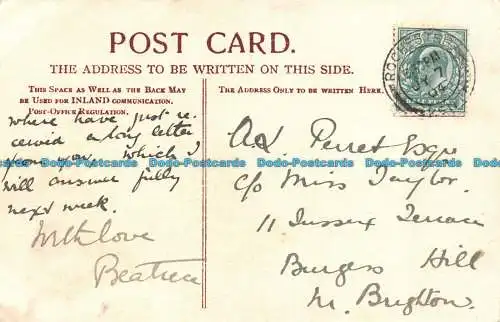 POST CARD.
THE ADDRESS TO BE WRITTEN ON THIS SIDE.
THIS SPACE AS WELL AS THE BACK MAY
BE USED FOR INLAND COMMUNICATION.
POST-OFFICE REGULATION.
where have just re-
ceived a long letter
from you, which I
will answer fully
next week.
With love
Beatrice
THE ADDRESS ONLY TO BE WRITTEN HERE.
ROCHESTER
A.L. Perret Esqre
c/o Miss Taylor.
11 Sussex Terrace
Burgess Hill
Nr. Brighton.
Dodo-Postcards Dodo-Postcards Dodo-Postcards Dodo-Postcards